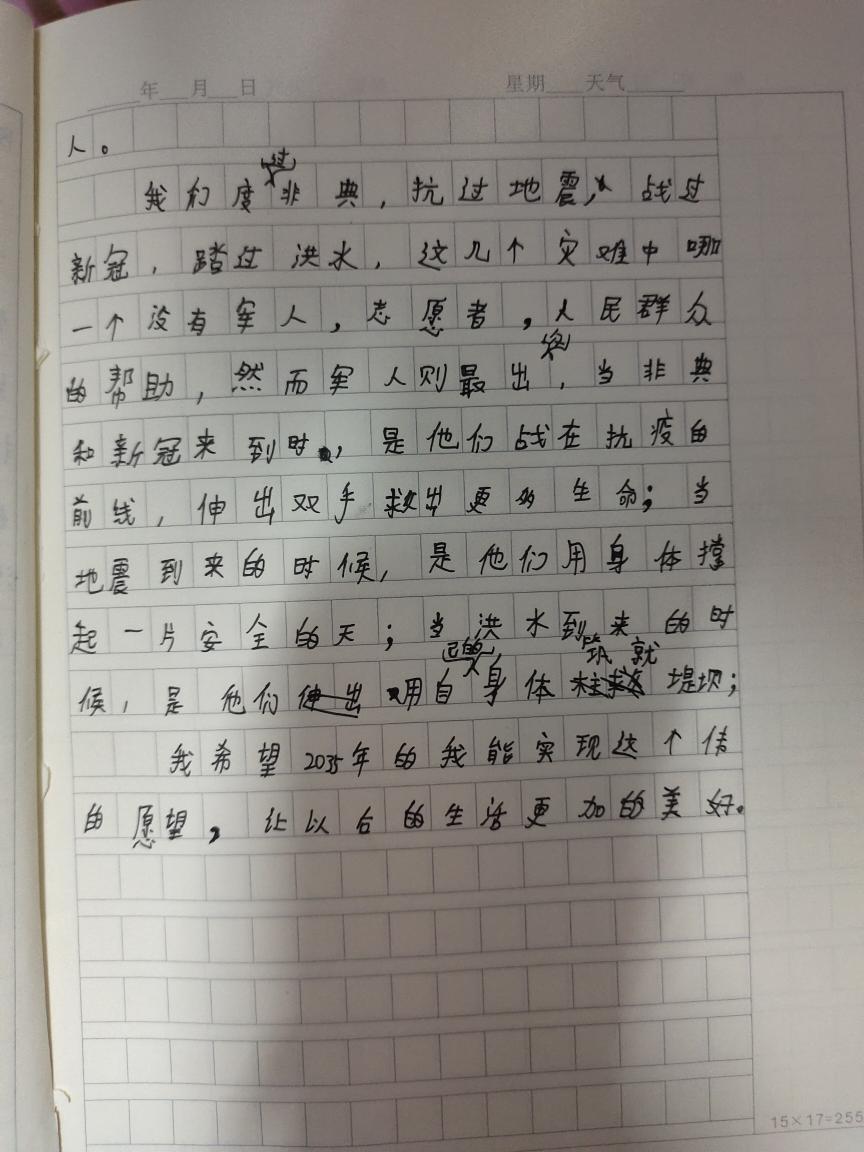 年 月 日 星期 天气
人。
我们度过非典，抗过地震，战过
新冠，踏过洪水，这几个灾难中哪
一个没有军人，志愿者，人民群众
的帮助，然而军人则最突出，当非典
和新冠来到时，是他们战在抗疫的
前线，伸出双手救出更多生命；当
地震到来的时候，是他们用身体撑
起一片安全的天；当洪水到来的时
候，是他们用自己的身体筑就堤坝；
我希望2035年的我能实现这个
的愿望，让以后的生活更加的美好。
15×17=255